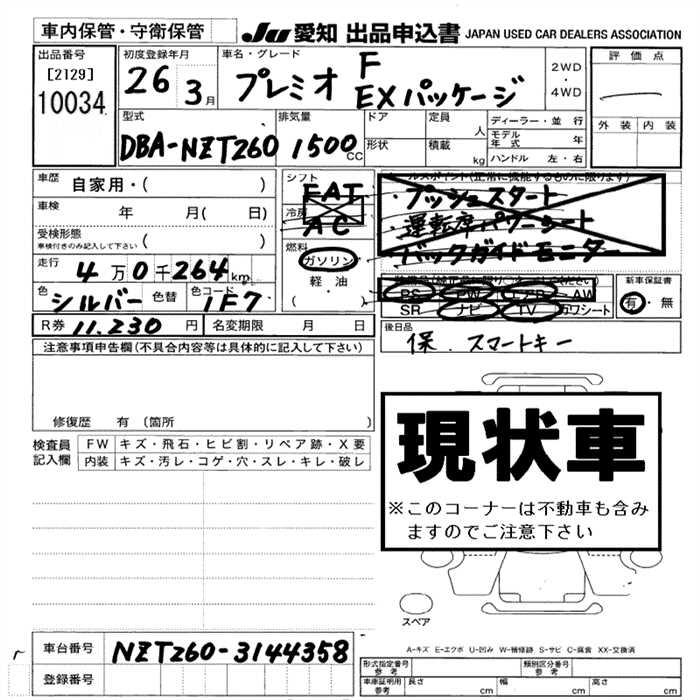 車内保管・守衛保管
JU 愛知 出品申込書 JAPAN USED CAR DEALERS ASSOCIATION
出品番号
[2129]
10034
初度登録年月
26 3月
車名・グレード
プレミオ F
EXパッケージ
2WD
・
4WD
評価点
外装 内装
型式
DBA-NZT260
排気量
1500cc
ドア
形状
定員
人
積載
kg
ディーラー・並行
モデル年式 年
ハンドル 左・右
車歴 自家用・( )
車検 年 月( 日)
受検形態
車検付きのみ記入して下さい ( )
走行 4万0千264km
色 シルバー 色替 色コード 1F7
シフト
FAT
冷房
AC
燃料
ガソリン
軽・油
( )
ールスポイント(正常に機能するものに限ります)
・プッシュスタート
・運転席パワーシート
バックガイドモニター
PS PW AW
SR ナビ TV カワシート
新車保証書
有・無
後日品
保.スマートキー
R券 11.230円 名変期限 月 日
注意事項申告欄(不具合内容等は具体的に記入して下さい)
修復歴 有(箇所 )
検査員記入欄
FW キズ・飛石・ヒビ割・リペア跡・X要
内装 キズ・汚レ・コゲ・穴・スレ・キレ・破レ
現状車
※このコーナーは不動車も含み
ますのでご注意下さい
スペア
A-キズ E-エクボ U-凹み W-補修跡 S-サビ C-腐食 XX-交換済
車台番号 NZT260-3144358
登録番号
形式指定番号参考 類別区分番号参考
車庫証明用参考 長さ cm 幅 cm 高さ cm